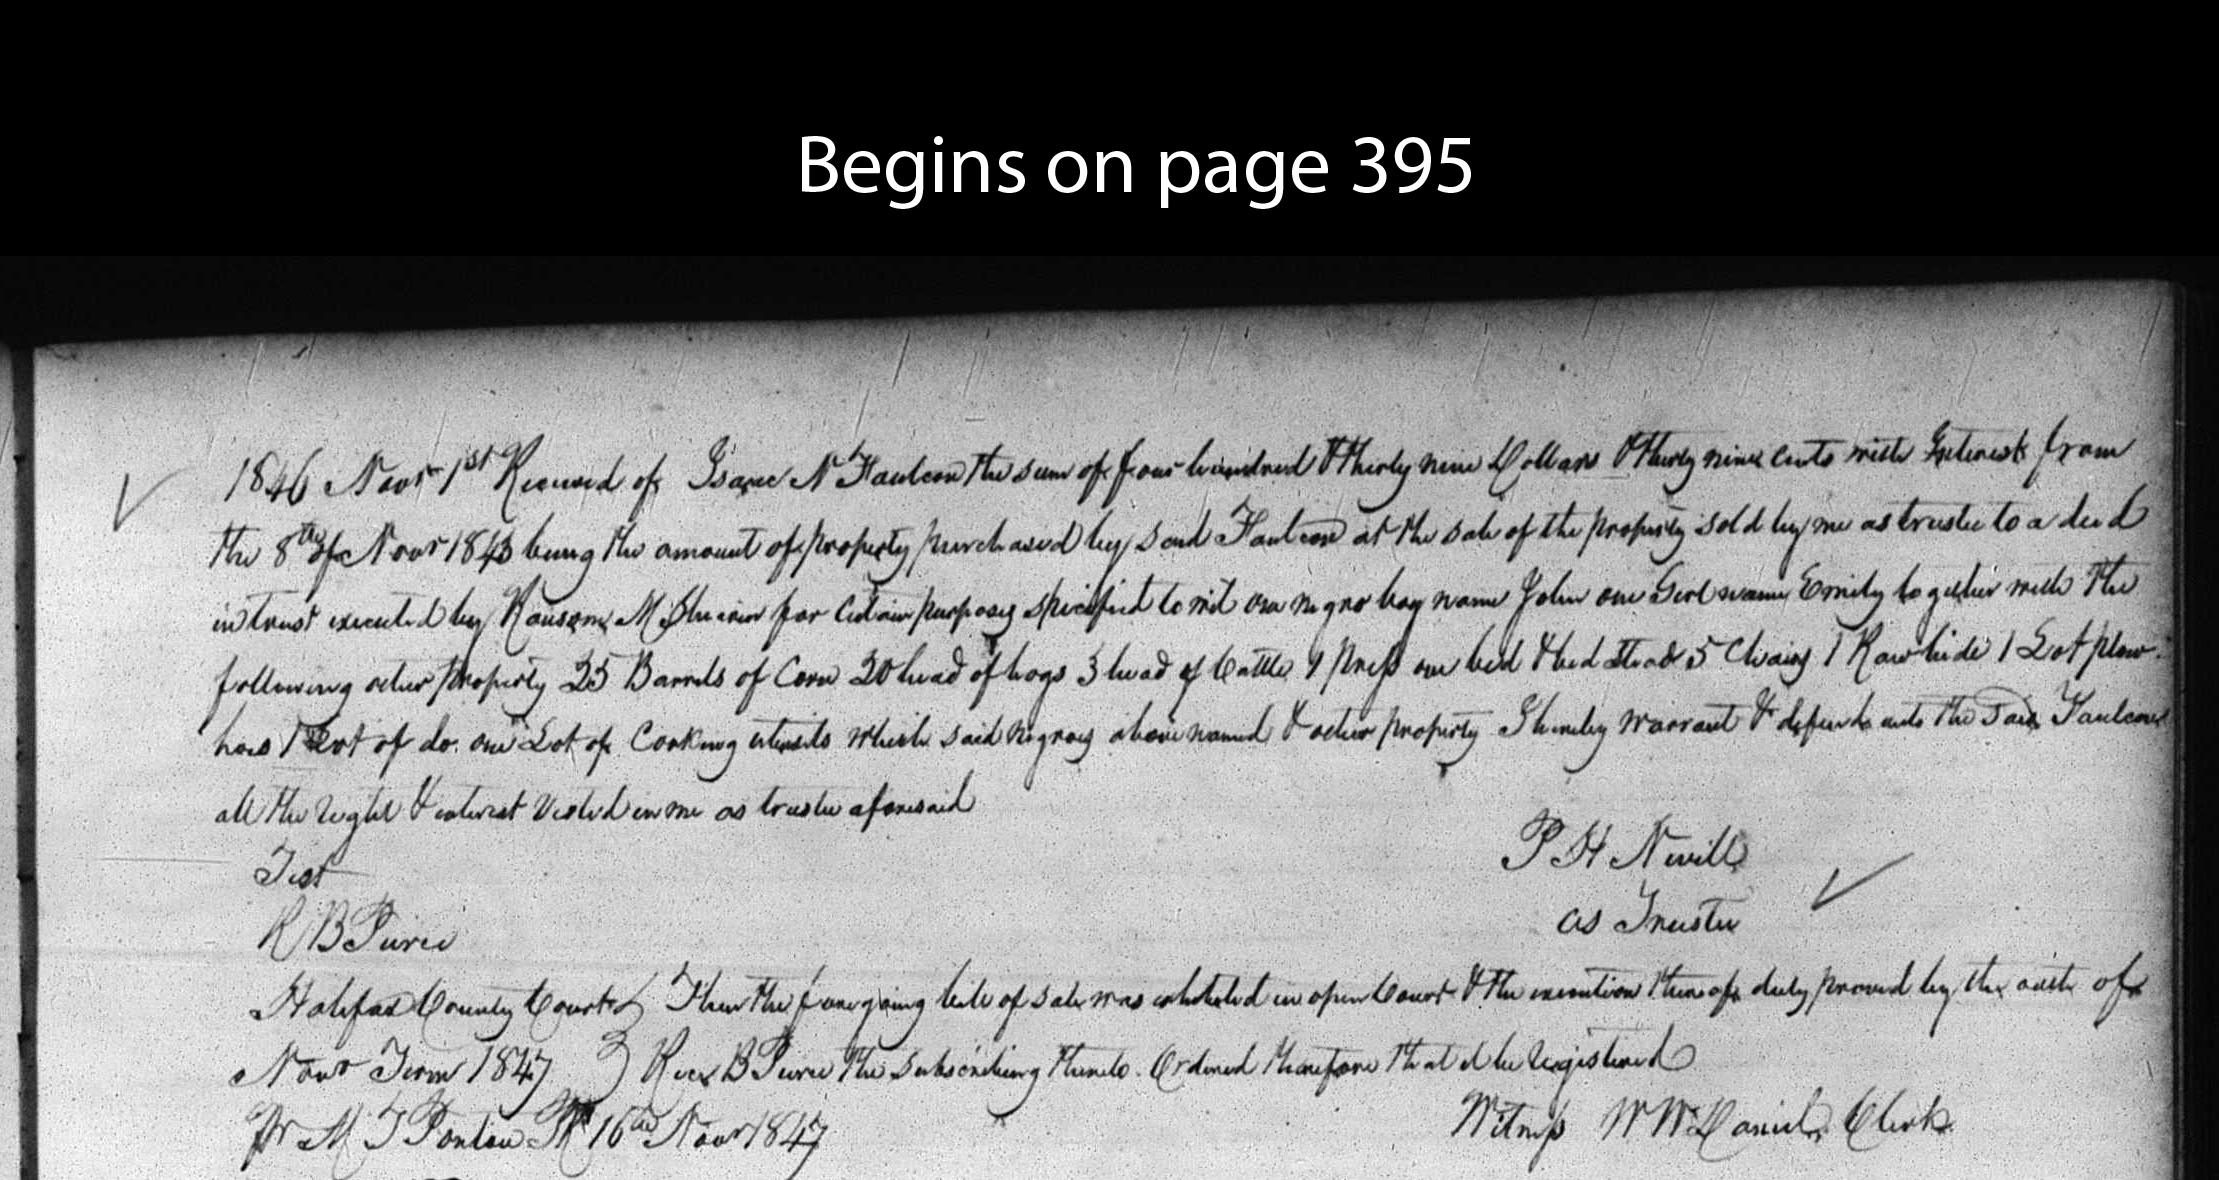 Begins on page 395
1846 Novr 1st Received of Isaac N Faulcon the sum of four hundred & thirty nine Dollars & thirty nine cents with Interest from
the 8th of Novr 1843 being the amount of property purchased by said Faulcon at the sale of the property sold by me as trustee to a deed
in trust executed by Ransom for certain purposes specified to wit one negro boy name John one Girl name Emily together with the
following other property 25 Barrels of Corn 20 head of hogs 3 head of Cattle 1 Press one bed & bed stead 5 Chairs 1 Raw hide 1 Lot plow
hoes 1 Lot of do. one Lot of Cooking utensils which said negroes above named & other property I hereby warrant & defend unto the said Faulcon
all the right & interest vested in me as trustee aforesaid
Test
P H Nevill
as Trustee
R B Pierce
Halifax County Court Then the foregoing bill of sale was exhibited in open Court & the execution thereof duly proved by the oath of
Novr Term 1847 Rice B Pierce the subscribing thereto. Ordered therefore that it be registered
Witness W W Daniel Clerk
Pr M T Ponton PR 16th Novr 1847